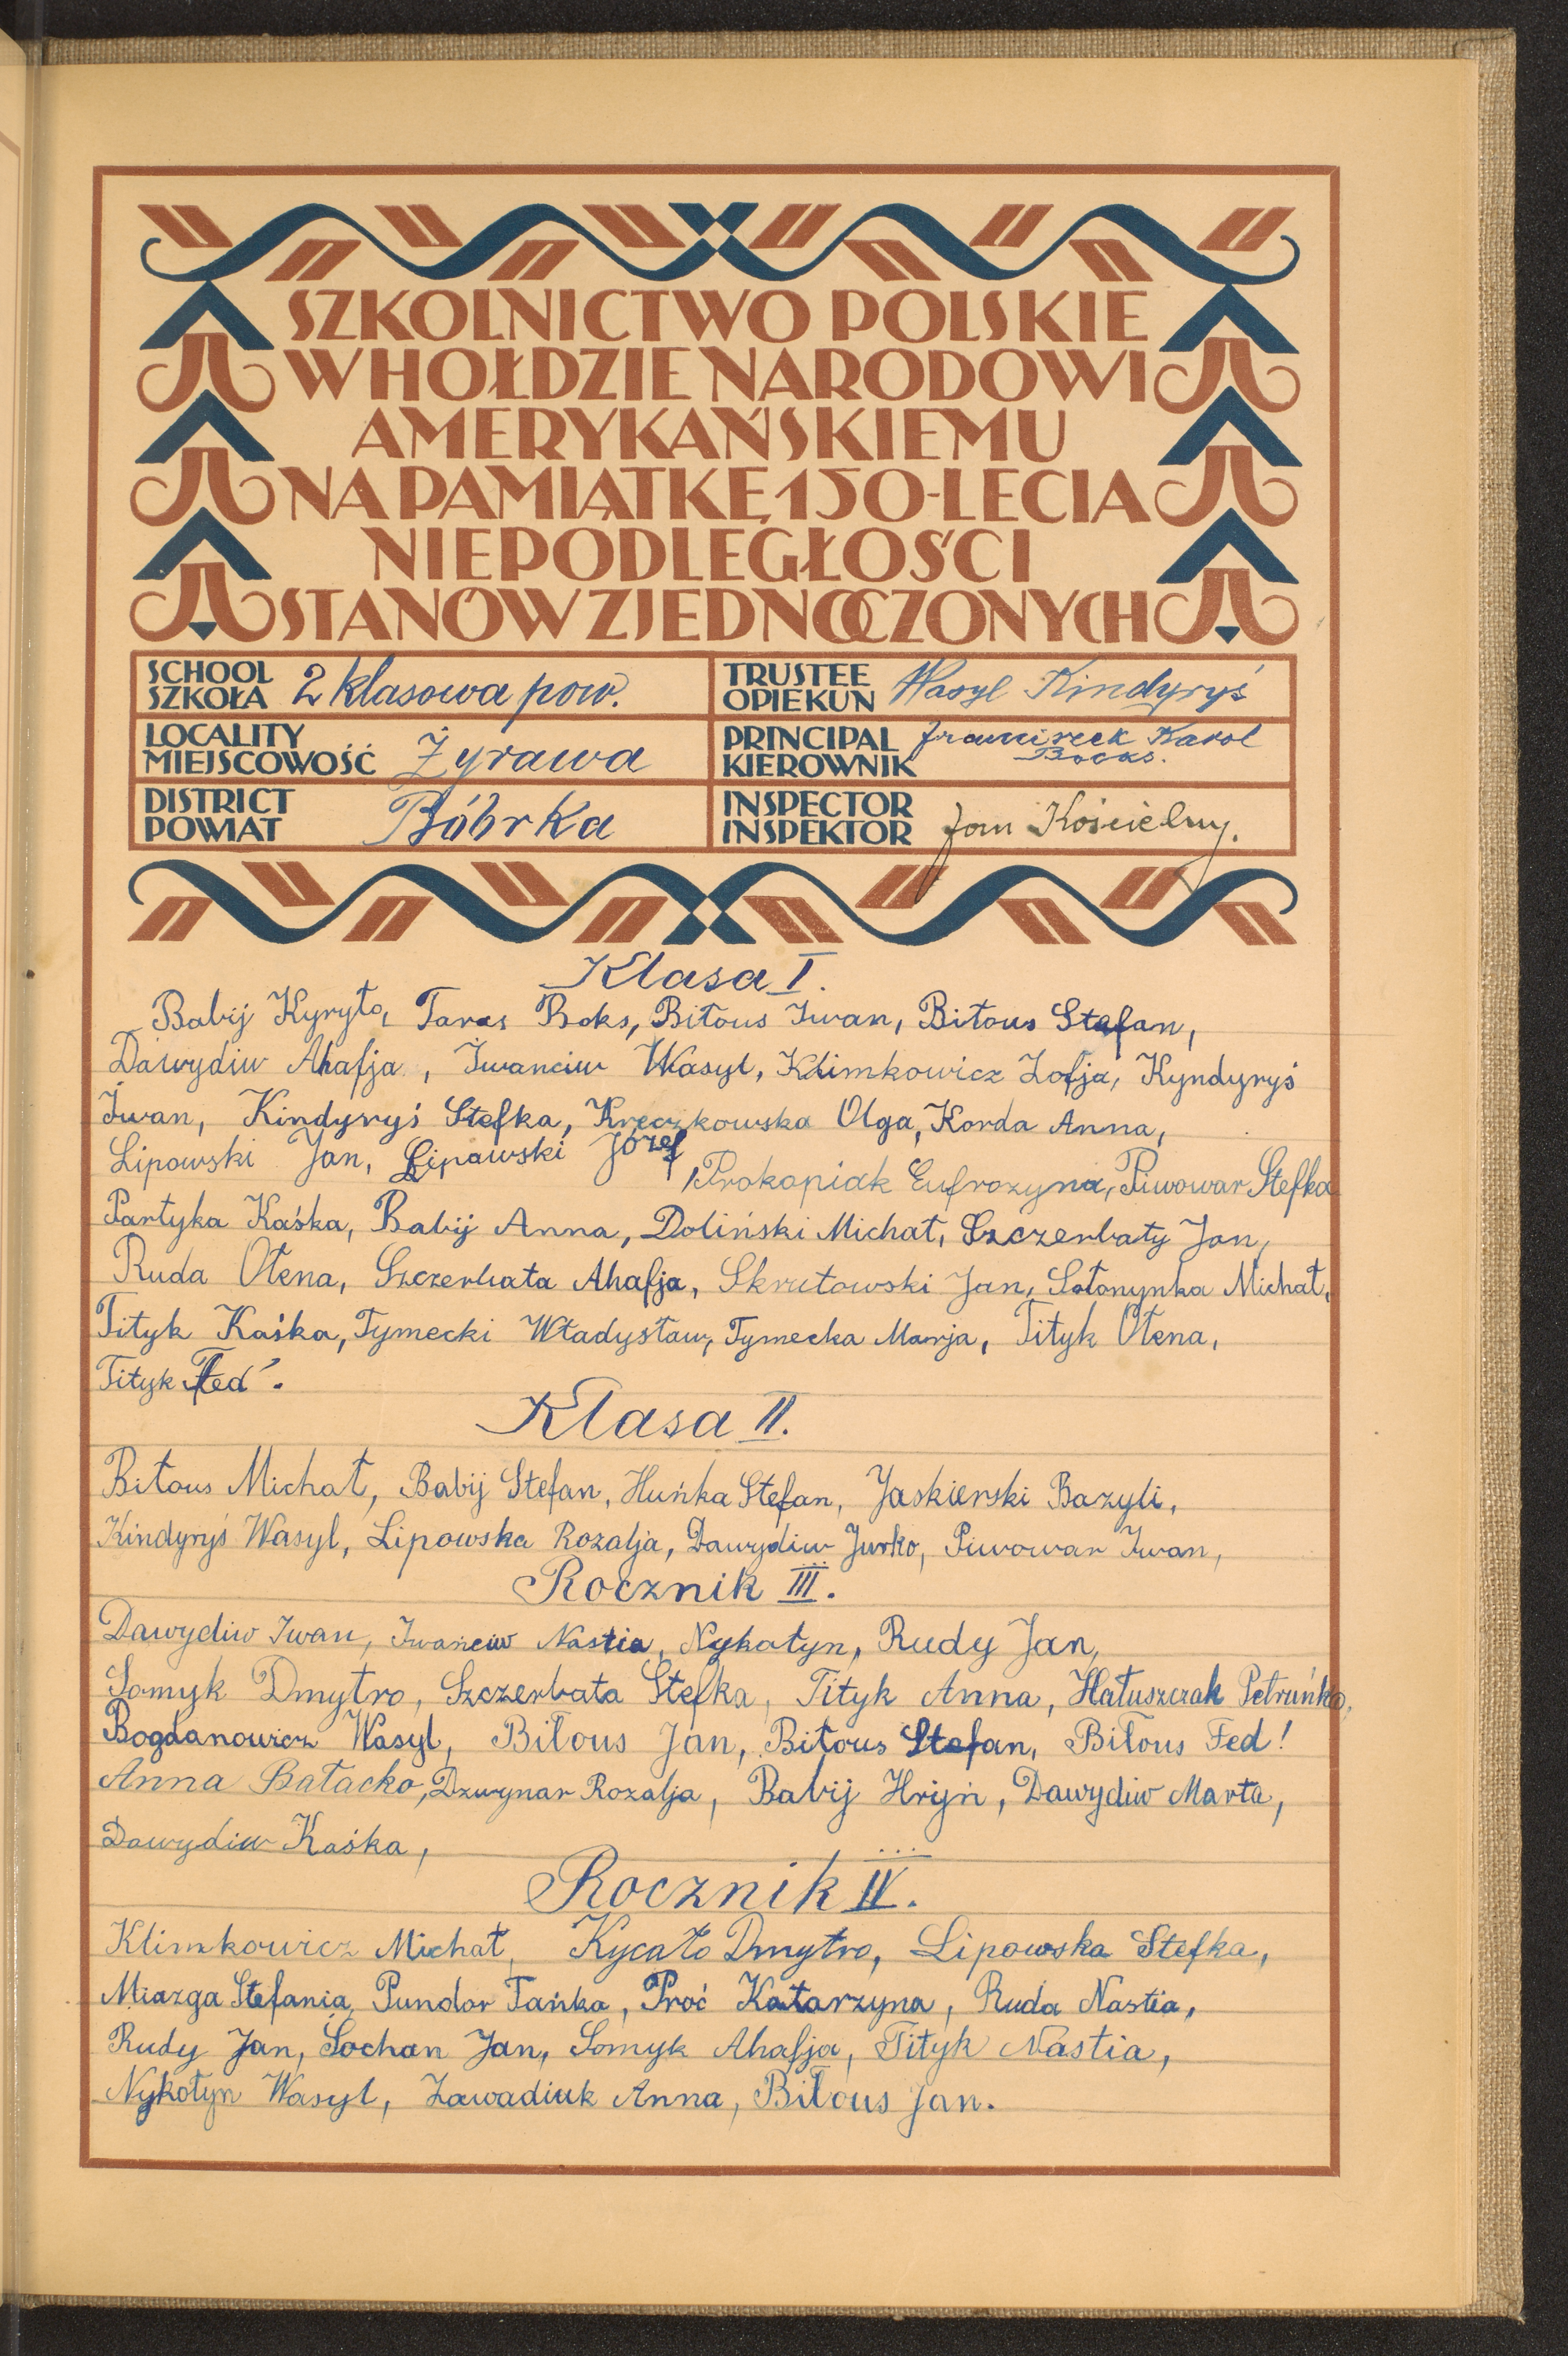 SZKOLNICTWO POLSKIE
W HOŁDZIE NARODOWI
AMERYKAŃSKIEMU
NA PAMIĄTKĘ 150-LECIA
NIEPODLEGŁOŚCI
STANÓW ZJEDNOCZONYCH
SCHOOL
SZKOŁA 2 klasowa pow.
TRUSTEE
OPIEKUN Wasyl Kindyryś
LOCALITY
MIEJSCOWOŚĆ Żyrawa
PRINCIPAL
KIEROWNIK Franciszek Karol
DISTRICT
POWIAT Bóbrka
INSPECTOR
INSPEKTOR Jan Kościelny.
Klasa I.
Babij Kyryło, Taras Boks, Biłous Iwan, Biłous Stefan,
Dawydiw Ahafja, Iwanciw Wasyl, Klimkowicz Zofja, Kyndyryś
Iwan, Kindyryś Stefka, Kreczkowska Olga, Korda Anna,
Lipowski Jan, Lipowski Józef, Prokopiak Eufrozyna, Piwowar Stefka
Partyka Kaśka, Babij Anna, Doliński Michał, Szczerbaty Jan,
Ruda Ołena, Szczerbata Ahafja, Skrutowski Jan, Sołonynka Michał,
Tityk Kaśka, Tymecki Władysław, Tymecka Marja, Tityk Ołena,
Tityk Fed'.
Klasa II.
Biłous Michał, Babij Stefan, Huńka Stefan, Jaskierski Bazyli,
Kindyryś Wasyl, Lipowska Rozalja, Dawydiw Jurko, Piwowar Iwan,
Rocznik III.
Dawydiw Iwan, Iwanciw Nastia, Nykołyn, Rudy Jan,
Somyk Dmytro, Szczerbata Stefka, Tityk Anna, Hałuszczak Petruńko,
Bogdanowicz Wasyl, Biłous Jan, Biłous Stefan, Biłous Fed!
Anna Bałacko, Dzwynar Rozalja, Babij Hryń, Dawydiw Marta,
Dawydiw Kaśka,
Rocznik IV.
Klimkowicz Michał, Kycało Dmytro, Lipowska Stefka,
Miazga Stefania, Pundor Tańka, Proć Katarzyna, Ruda Nastia,
Rudy Jan, Sochan Jan, Somyk Ahafja, Tityk Nastia,
Nykołyn Wasyl, Zawadiuk Anna, Biłous Jan.